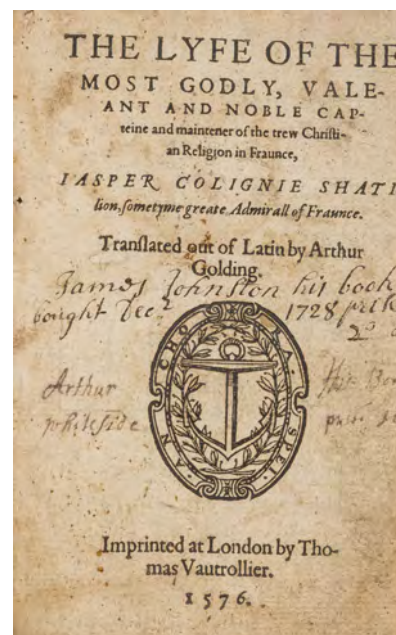 THE LYFE OF THE
MOST GODLY, VALE-
ANT AND NOBLE CAP-
teine and maintener of the trew Christi-
an Religion in Fraunce,
IASPER COLIGNIE SHATI
lion, sometyme greate Admirall of Fraunce.
Translated out of Latin by Arthur
Golding.
James Johnston his book
bought Dec.
1728
ANCHORA SPEI
Arthur
whiteside
Imprinted at London by Tho-
mas Vautrollier.
1576.